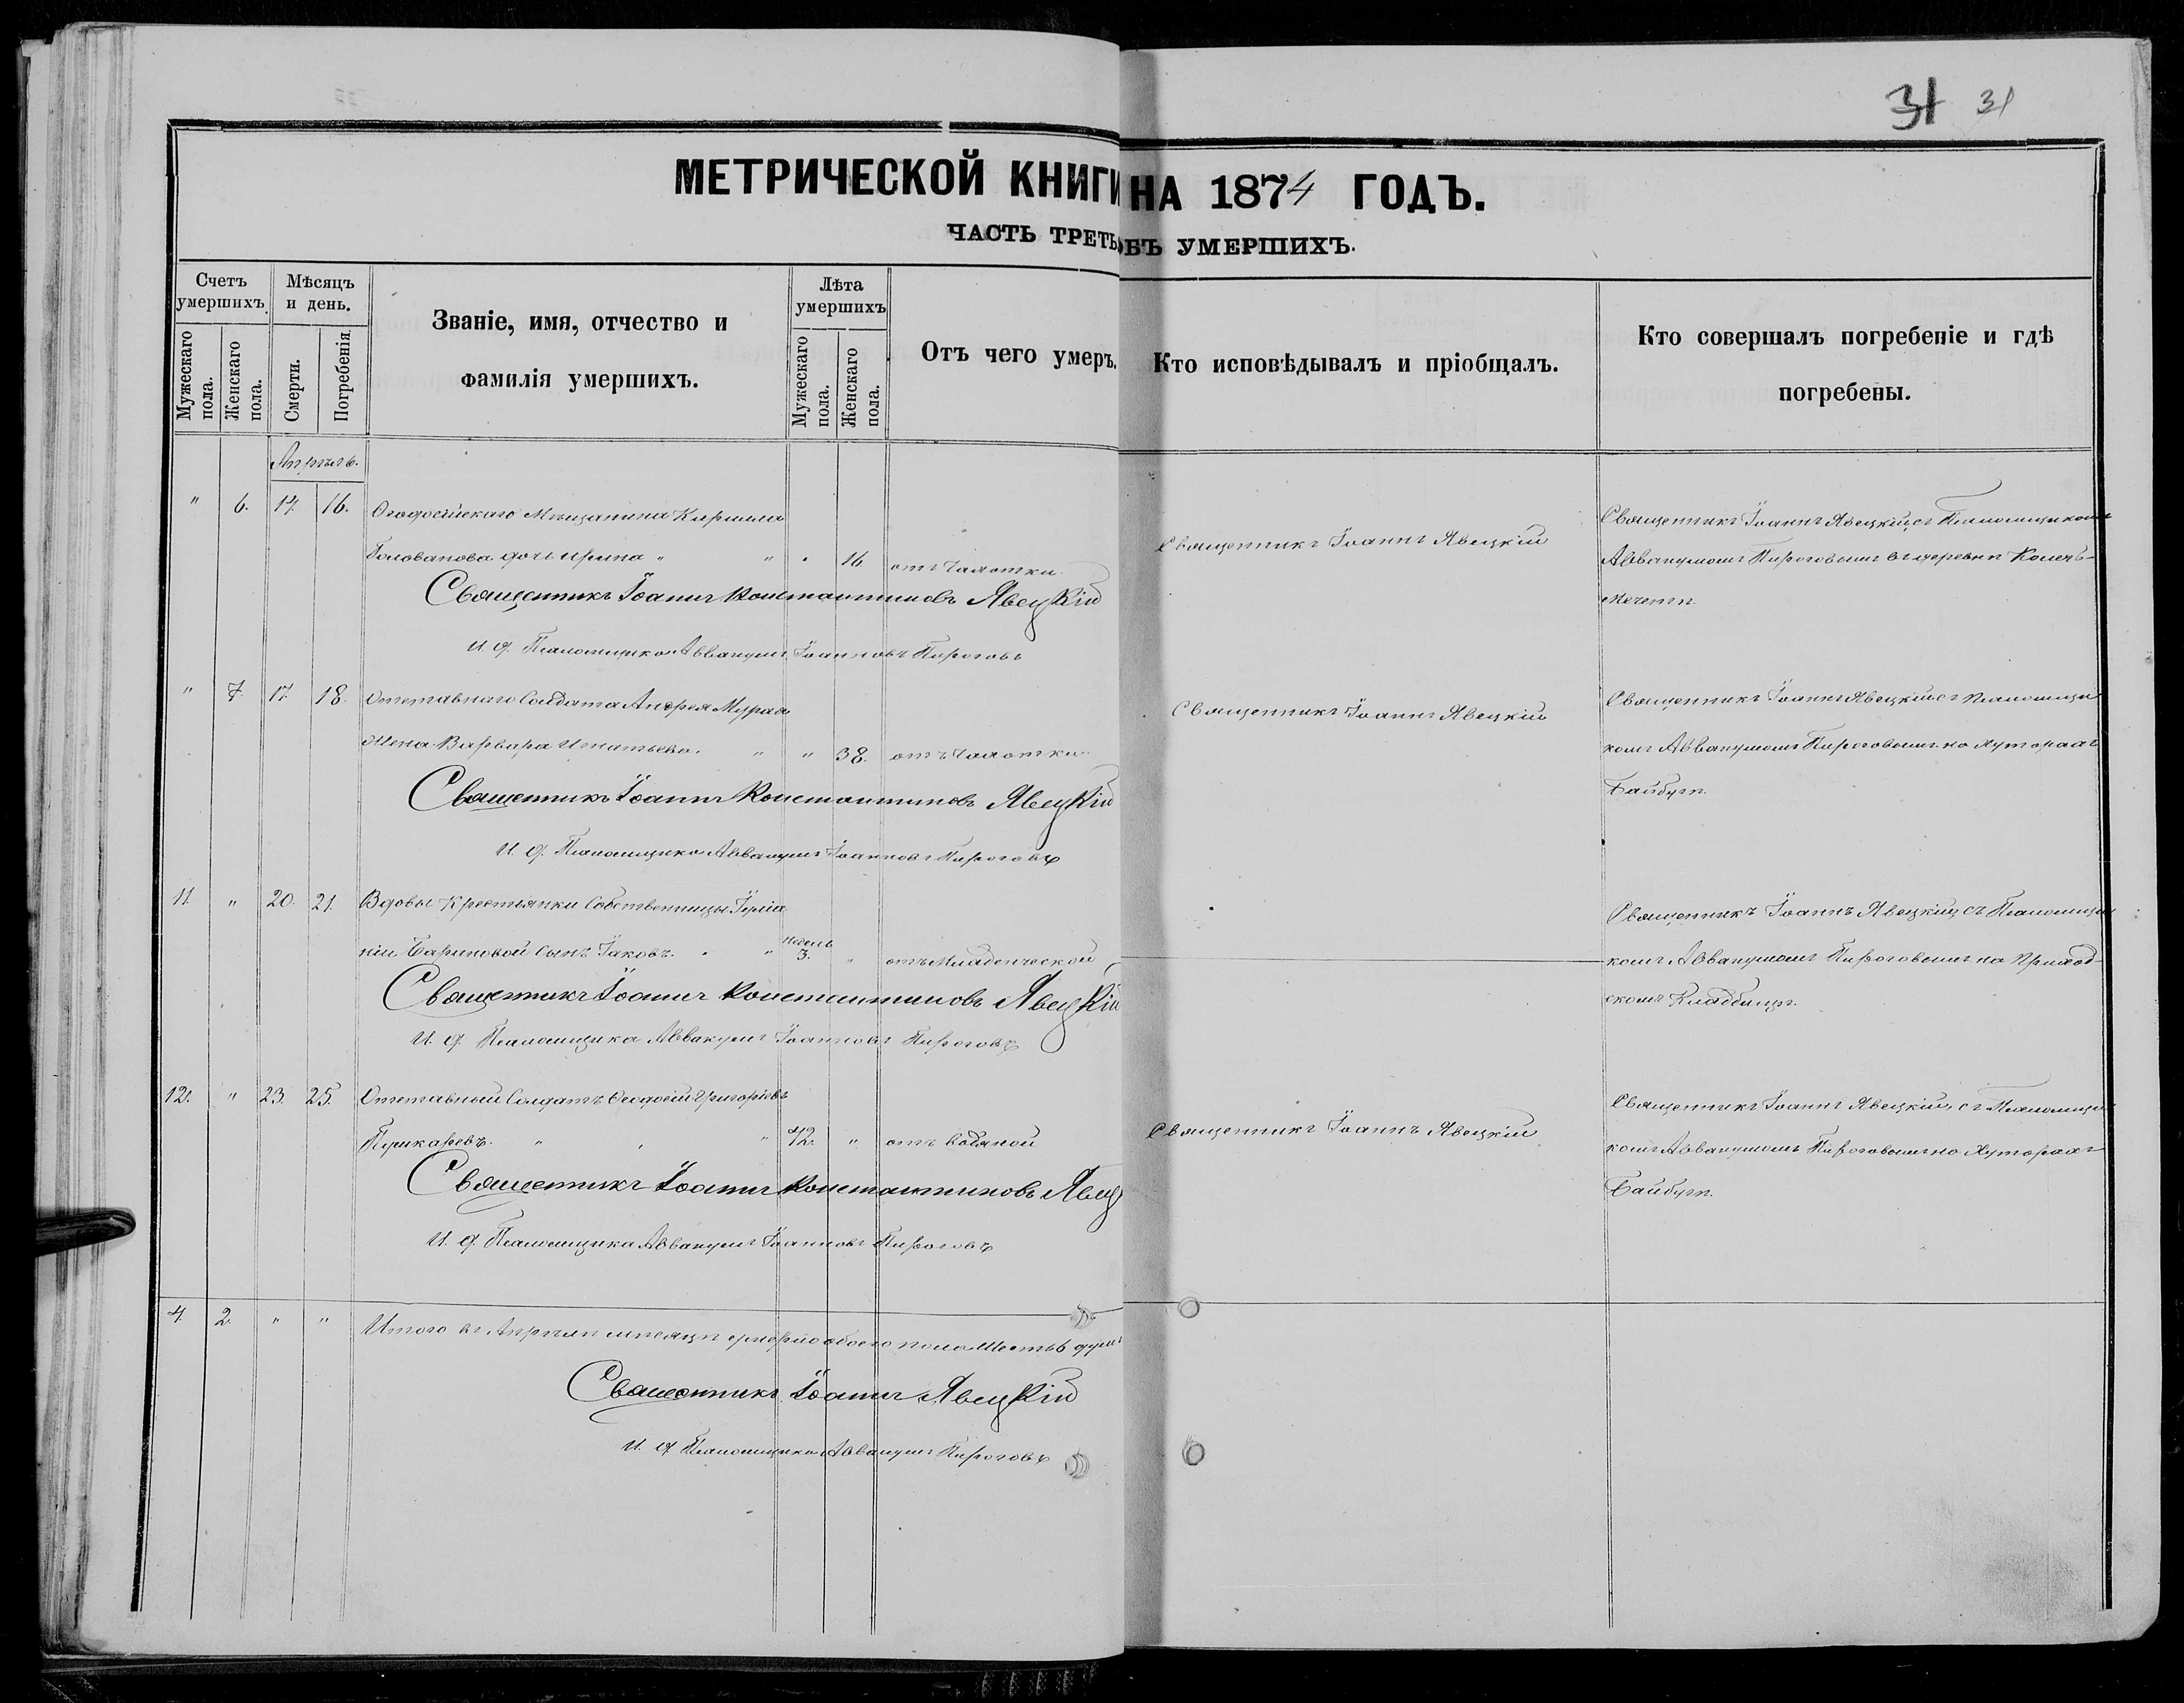 31 31
МЕТРИЧЕСКОЙ КНИГИ НА 1874 ГОДЪ.
ЧАСТЬ ТРЕТЬ ОБЪ УМЕРШИХЪ.
Счетъ умершихъ.
Мужескаго пола.
Женскаго пола.
Мѣсяцъ и день.
Смерти.
Погребенія.
Званіе, имя, отчество и
фамилія умершихъ.
Лѣта умершихъ
Мужескаго пола.
Женскаго пола.
Отъ чего умеръ.
Кто исповѣдывалъ и пріобщалъ.
Кто совершалъ погребеніе и гдѣ
погребены.
Апрѣль.
" 6. 14. 16. Ѳеодосійскаго Мѣщанина Кирилла
Голованова дочь Ирина " " " 16 отъ Чахотки.
Священникъ Іоаннъ Константиновъ Явецкій
И. д. Псаломщика Аввакумъ Іоанновъ Пироговъ
Священникъ Іоаннъ Явецкій
Священникъ Іоаннъ Явецкій съ Псаломщикомъ
Аввакумомъ Пироговымъ въ деревнѣ
Мечети.
" 7. 17. 18. Отставнаго Солдата Андрея
Жена Варвара Игнатьева. " " 38. отъ Чахотки.
Священникъ Іоаннъ Константиновъ Явецкій
И. д. Псаломщика Аввакумъ Іоанновъ Пироговъ
Священникъ Іоаннъ Явецкій
Священникъ Іоаннъ Явецкій съ Псаломщи
комъ Аввакумомъ Пироговымъ на Хуторахъ
Байбуги.
11. " 20. 21. Вдовы Крестьянки Собственницы
ніи Бариновой Сынъ Іаковъ. " " недель 3. " отъ Младенческой
Священникъ Іоаннъ Константиновъ Явецкій
И. д. Псаломщика Аввакумъ Іоанновъ Пироговъ
Священникъ Іоаннъ Явецкій съ Псаломщи
комъ Аввакумомъ Пироговымъ на Приход-
скомъ Кладбищѣ.
12. " 23. 25. Отставный Солдатъ Ѳеодосій Григорьевъ
Пушкаревъ. " " " 42. " отъ Водяной
Священникъ Іоаннъ Константиновъ Явец
И. д. Псаломщика Аввакумъ Іоанновъ Пироговъ
Священникъ Іоаннъ Явецкій
Священникъ Іоаннъ Явецкій, съ Псаломщи
комъ Аввакумомъ Пироговымъ на Хуторахъ
Байбуги.
4. 2. " " Итого въ Апрѣлѣ мѣсяцѣ умерло обоего пола Шесть 6 душъ
Священникъ Іоаннъ Явецкій
И. д. Псаломщика Аввакумъ Пироговъ